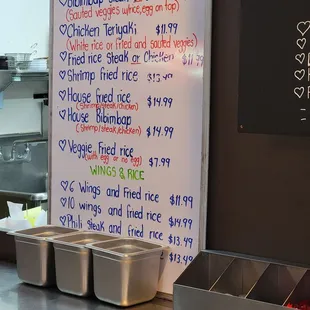 ♡ Bibimbap steak
(Sauted vegaies w/rice, egg on top)
♡ Chicken Teriyaki $11.99
(White rice or Fried and sauted veggies)
Fried rice Steak or Chicken $11.99
♡ Shrimp fried rice $13.99
♡ House fried rice $14.99
(Shrimp/steak/chicken)
♡ House Bibimbap $14.99
(Shrimp/steak/chicken)
♡ Veggie Fried rice $7.99
(with egg or no egg)
WINGS & RICE
♡ 6 Wings and fried rice $11.99
♡ 10 wings and fried rice $14.99
♡ Phili Steak and fried rice $13.99
$13.99